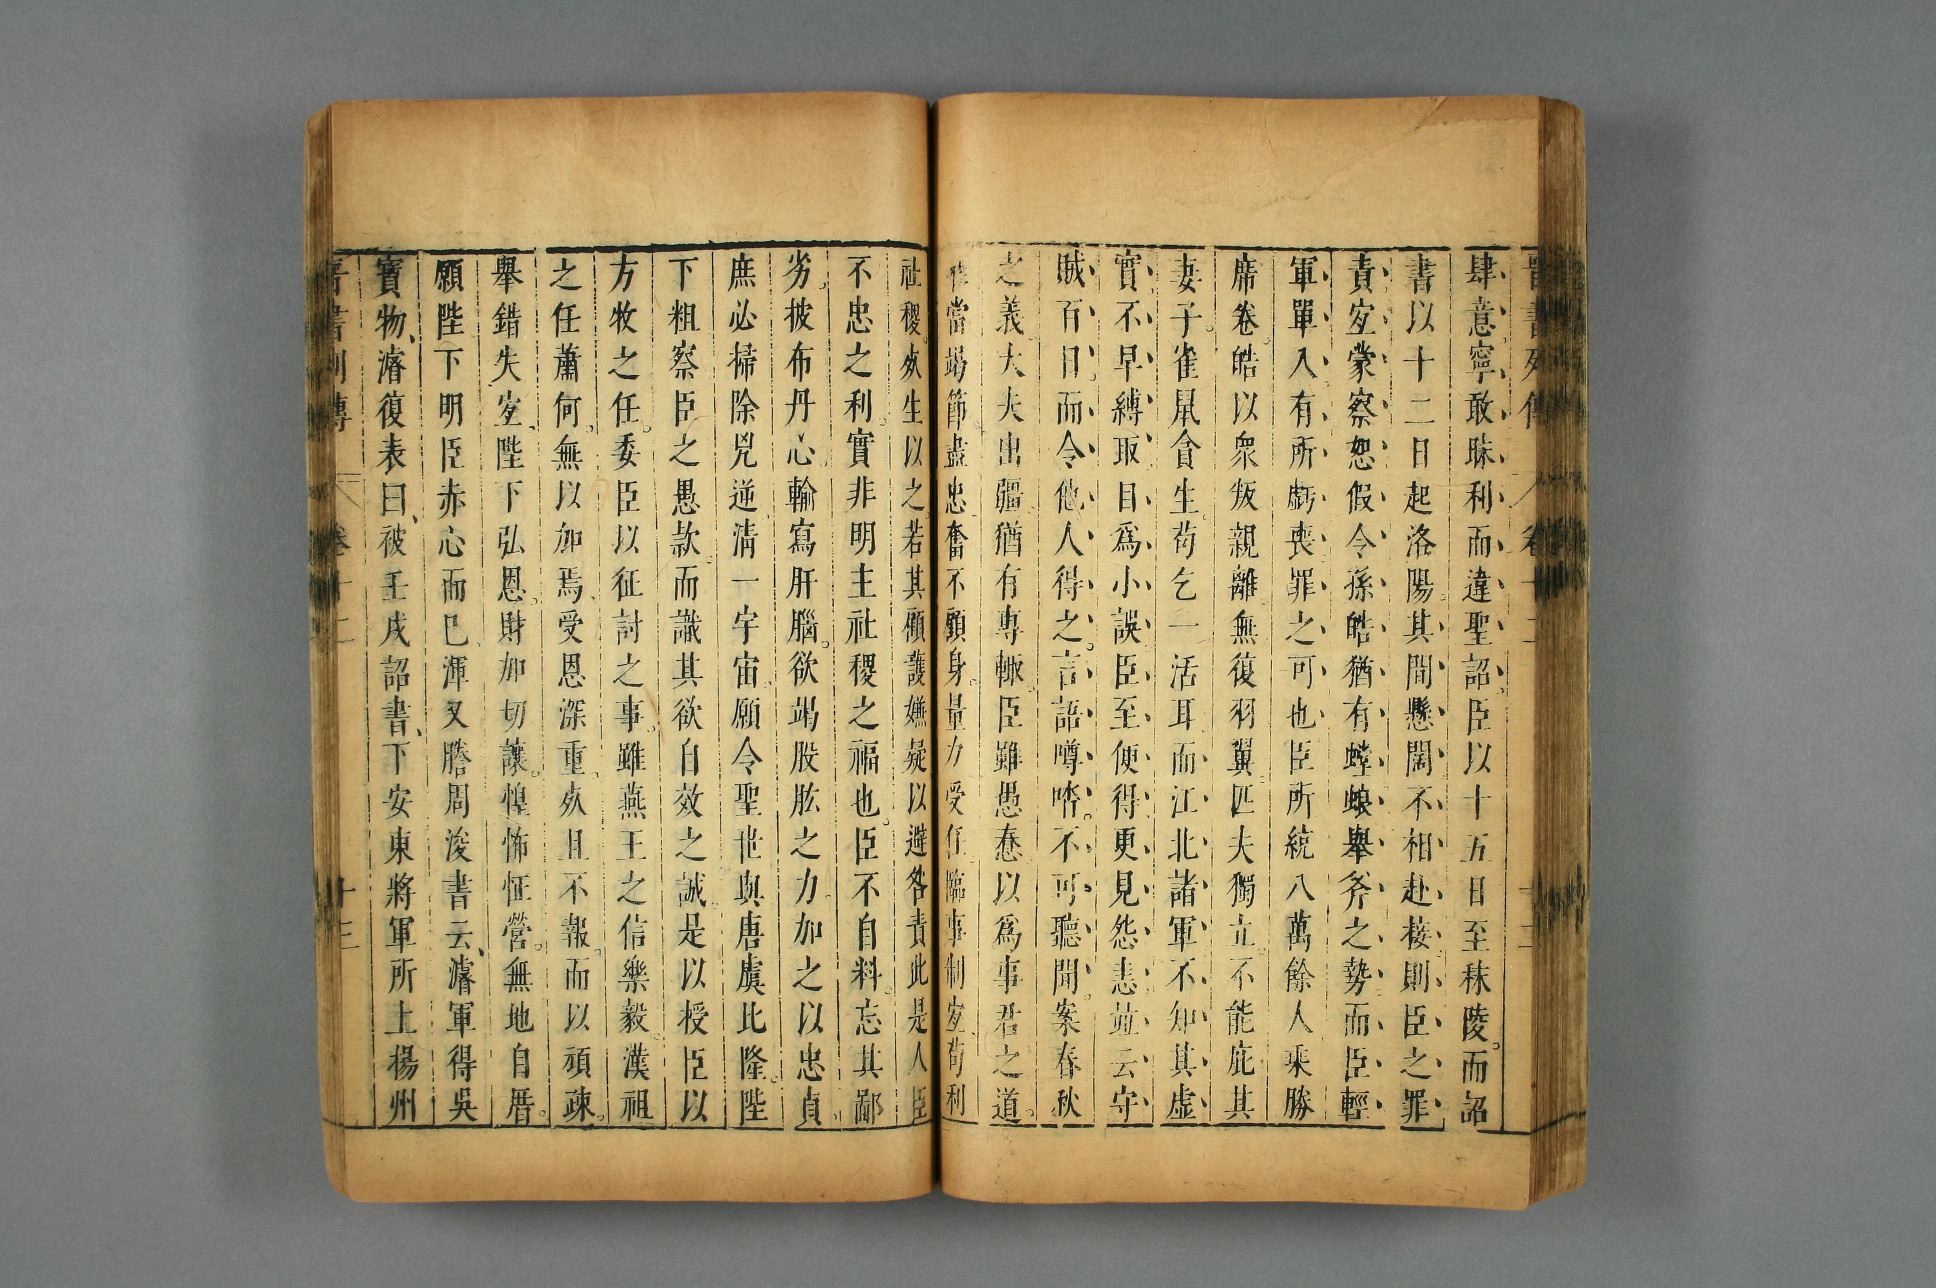 晉書列傳 卷十二 十三
肆意寧敢昧利而違聖詔臣以十五日至秣陵而詔
書以十二日起洛陽其間懸闊不相赴接則臣之罪
責宐蒙察恕假令孫皓猶有螳蜋舉斧之勢而臣輕
軍單入有所虧喪罪之可也臣所統八萬餘人乘勝
席卷皓以衆叛親離無復羽翼匹夫獨立不能庇其
妻子雀鼠貪生苟乞一活耳而江北諸軍不知其虛
實不早縛取自爲小誤臣至便得更見怨恚並云守
賊百日而令他人得之言語噂𠴲不可聽聞案春秋
之義大夫出疆猶有專輙臣雖愚惷以爲事君之道
唯當竭節盡忠奮不顧身量力受任臨事制宐苟利
社稷死生以之若其顧護嫌疑以避咎責此是人臣
不忠之利實非明主社稷之福也臣不自料忘其鄙
劣披布丹心輸寫肝腦欲竭股肱之力加之以忠貞
庶必掃除兇逆清一宇宙願令聖世與唐虞比隆陛
下粗察臣之愚款而識其欲自效之誠是以授臣以
方牧之任委臣以征討之事雖燕王之信樂毅漢祖
之任蕭何無以加焉受恩深重死且不報而以頑疎
舉錯失宐陛下弘恩財加切讓惶怖怔營無地自厝
願陛下明臣赤心而已渾又騰周浚書云濬軍得吳
寶物濬復表曰被壬戌詔書下安東將軍所上揚州
晉書列傳 卷十二 十三